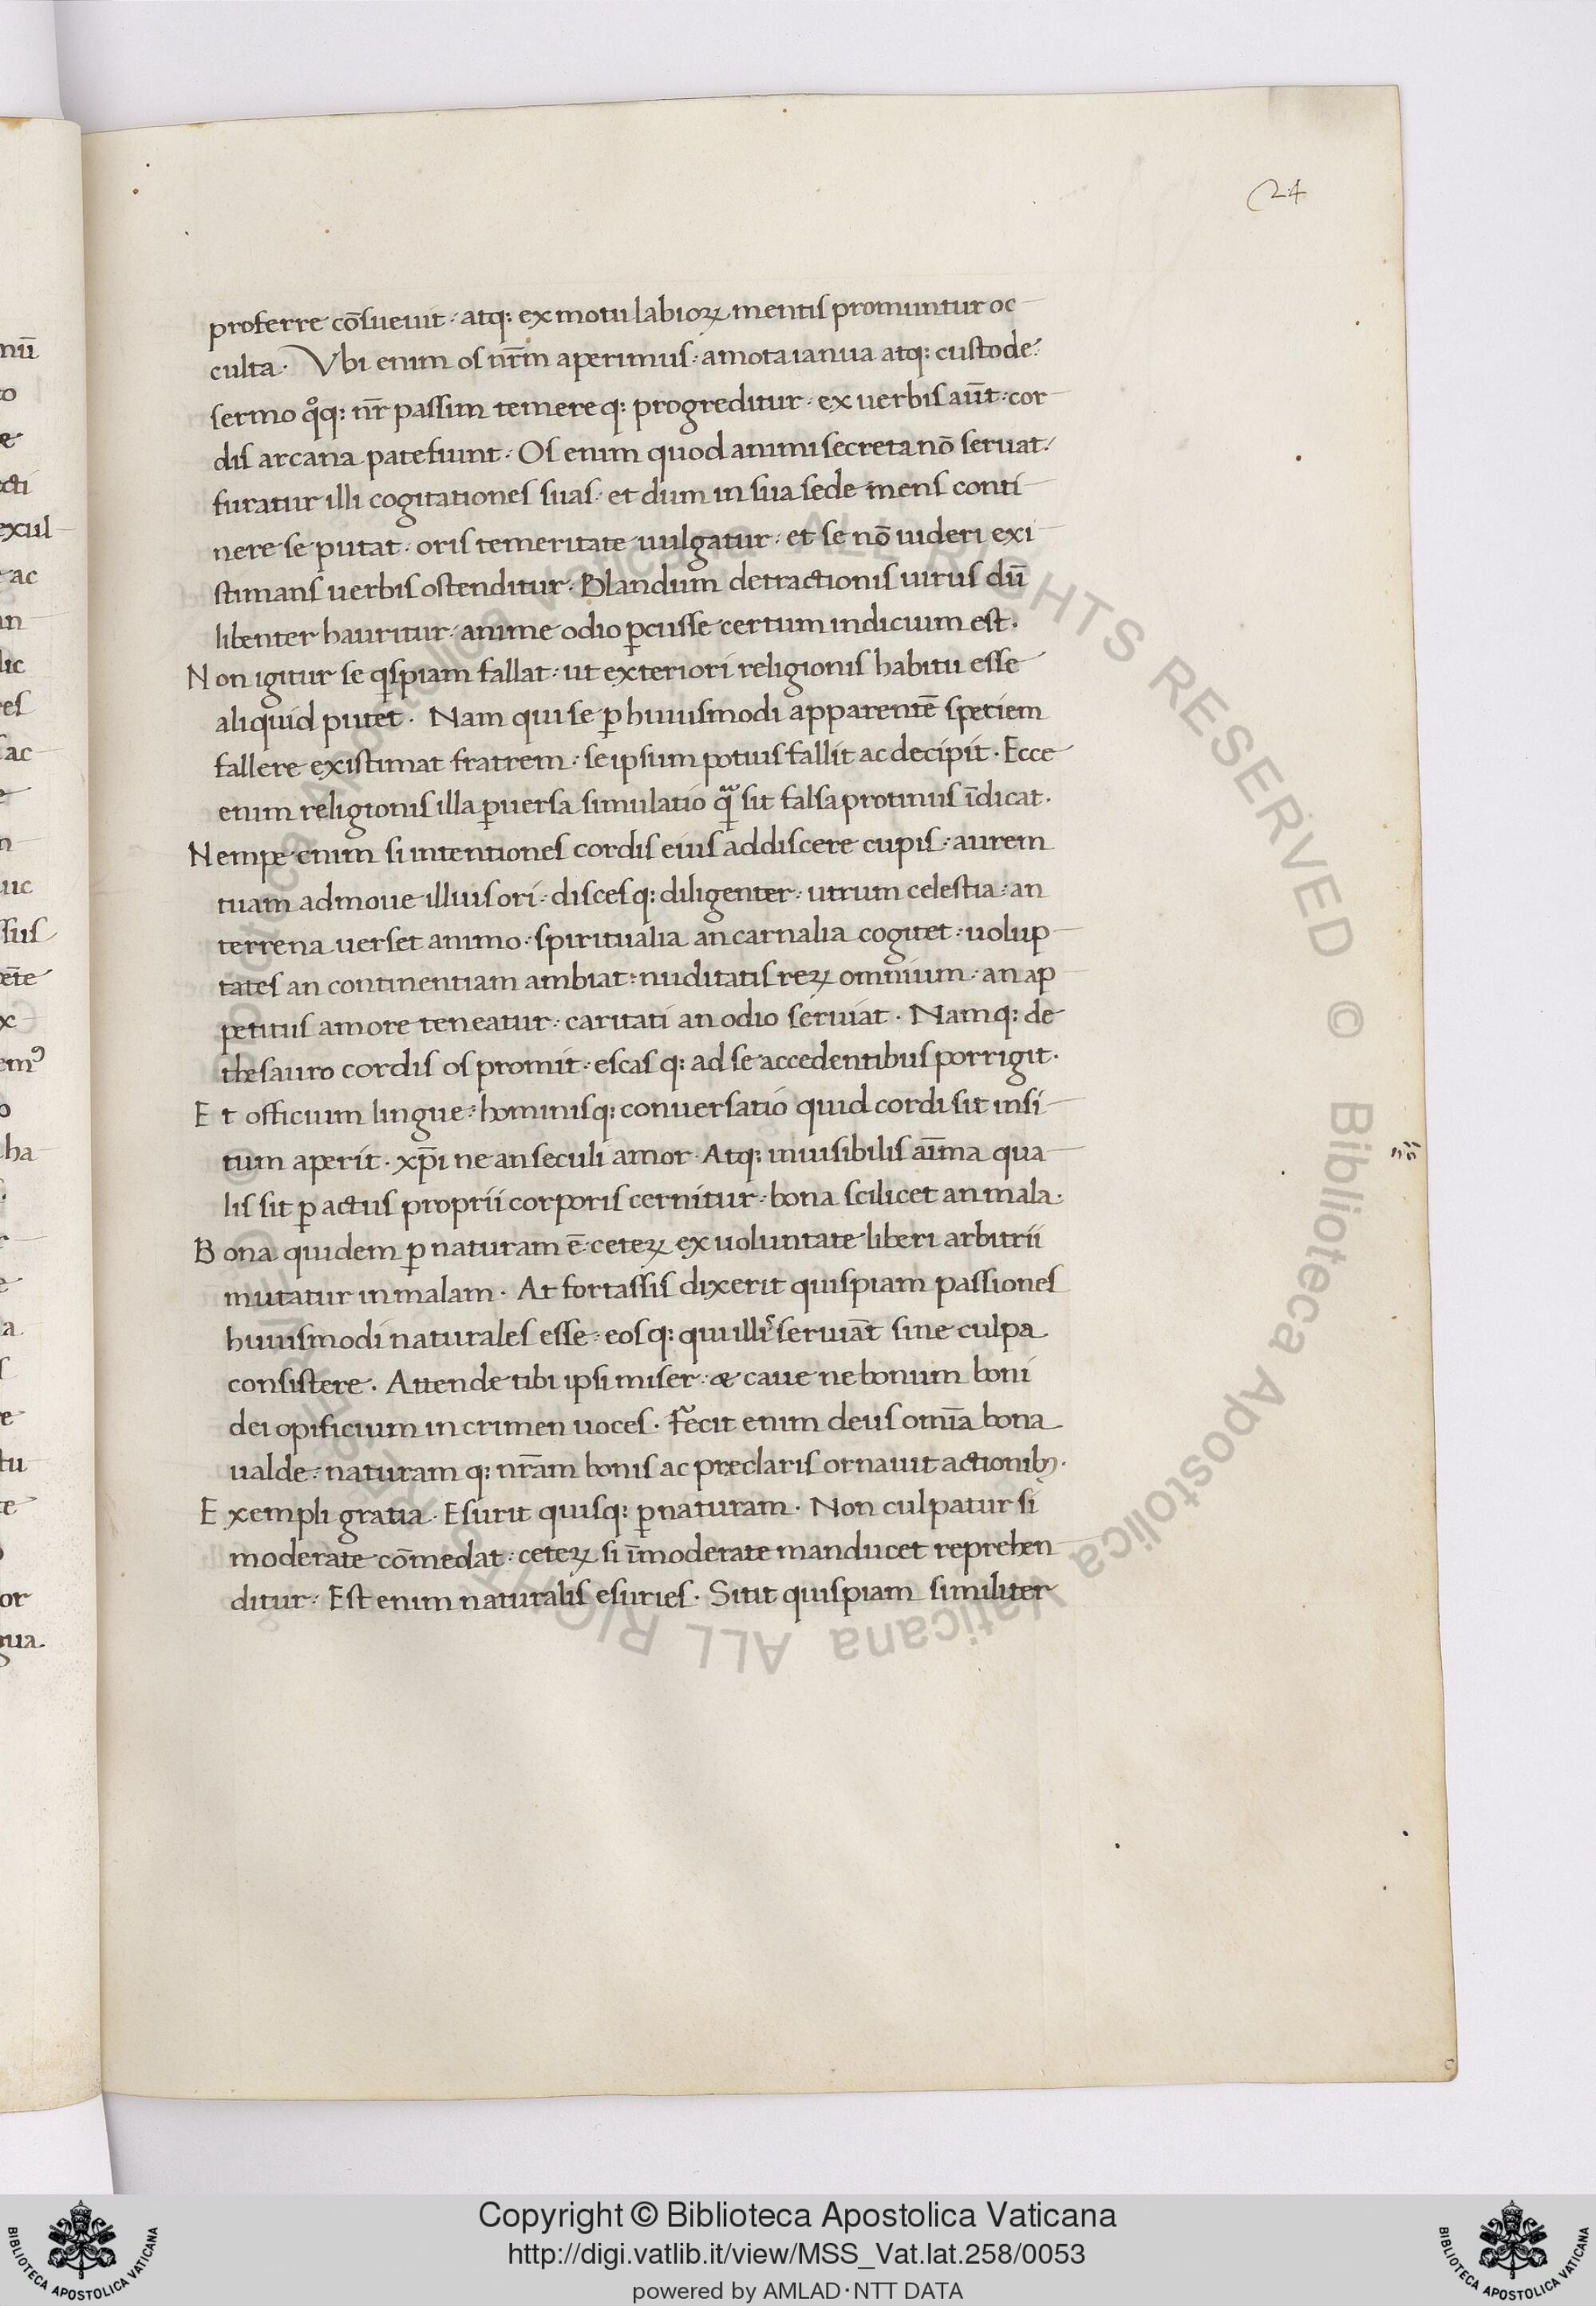 24
proferre cōsueuit · atq: ex motu labioꝝ mentis promuntur oc
culta · Vbi enim os nr̄m aperimus · amota ianua atq: custode ·
sermo qͦq: nr̄ passim temere q: progreditur · ex uerbis aūt · cor
dis arcana patefiunt · Os enim quod animi secreta nō seruat ·
furatur illi cogitationes suas · et dum in sua sede mens conti
nere se putat · oris temeritate uulgatur · et se nō uideri exi
stimans uerbis ostenditur · Blandum detractionis uirus dū
libenter hauritur · anime odio ꝑcusse certum indicium est ·
Non igitur se qͥspiam fallat · ut exteriori religionis habitu esse
aliquid putet · Nam qui se ꝑ huiusmodi apparentē spetiem
fallere existimat fratrem · se ipsum potius fallit ac decipit · Ecce
enim religionis illa ꝑuersa simulatio qᷓ sit falsa protinus īdicat ·
Nempe enim si intentiones cordis eius addiscere cupis · aurem
tuam admoue illius ori · discesq: diligenter · utrum celestia · an
terrena uerset animo · spiritualia an carnalia cogitet · uolup
tates an continentiam ambiat · nuditatis reꝝ omnium · an ap
petitus amore teneatur · caritati an odio seruiat · Namq: de
thesauro cordis os promit · escas q: ad se accedentibus porrigit ·
Et officium lingue · hominisq: conuersatio quid cordi sit insi
tum aperit · xp̄i ne an seculi amor · Atq: inuisibilis aīma qua
lis sit ꝑ actus proprii corporis cernitur · bona scilicet an mala ·
Bona quidem ꝑ naturam ē · ceteꝝ ex uoluntate liberi arbitrii
mutatur in malam · At fortassis dixerit quispiam passiones
huiusmodi naturales esse · eosq: qui illiˢ seruiāt sine culpa
consistere · Attende tibi ipsi miser · æ caue ne bonum boni
dei opificium in crimen uoces · Fecit enim deus omīa bona
ualde · naturam q: nr̄am bonis ac preclaris ornauit actionibꝫ ·
Exempli gratia · Esurit quisq: ꝑ naturam · Non culpatur si
moderate cōmedat · ceteꝝ si īmoderate manducet reprehen
ditur · Est enim naturalis esuries · Sitit quispiam similiter
© Biblioteca Apostolica Vaticana ALL RIGHTS RESERVED
Copyright © Biblioteca Apostolica Vaticana
http://digi.vatlib.it/view/MSS_Vat.lat.258/0053
powered by AMLAD·NTT DATA
BIBLIOTECA APOSTOLICA VATICANA
BIBLIOTECA APOSTOLICA VATICANA